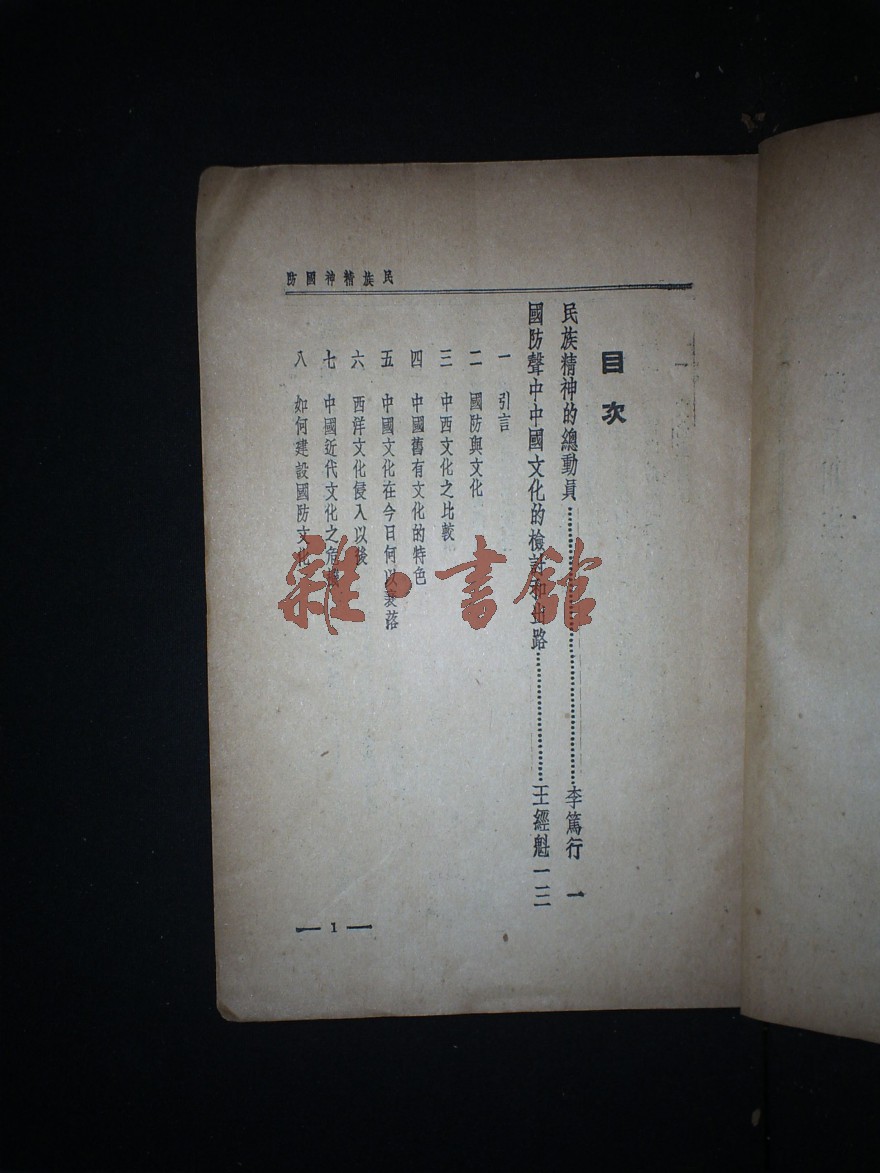 民族精神國防
目次
民族精神的總動員……李篤行 一
國防聲中中國文化的檢討和出路……王經魁 一三
一 引言
二 國防與文化
三 中西文化之比較
四 中國舊有文化的特色
五 中國文化在今日何以衰落
六 西洋文化侵入以後
七 中國近代文化之危
八 如何建設國防文化
— 1 —
雜·書館